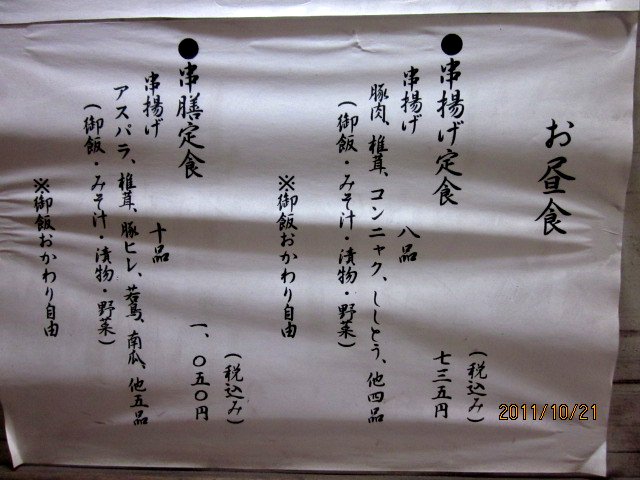 お昼食
●串揚げ定食
(税込み)
七三五円
串揚げ 八品
豚肉、椎茸、コンニャク、ししとう、他四品
(御飯・みそ汁・漬物・野菜)
※御飯おかわり自由
●串膳定食
(税込み)
一、〇五〇円
串揚げ 十品
アスパラ、椎茸、豚ヒレ、若鳥、南瓜、他五品
(御飯・みそ汁・漬物・野菜)
※御飯おかわり自由
2011/10/21